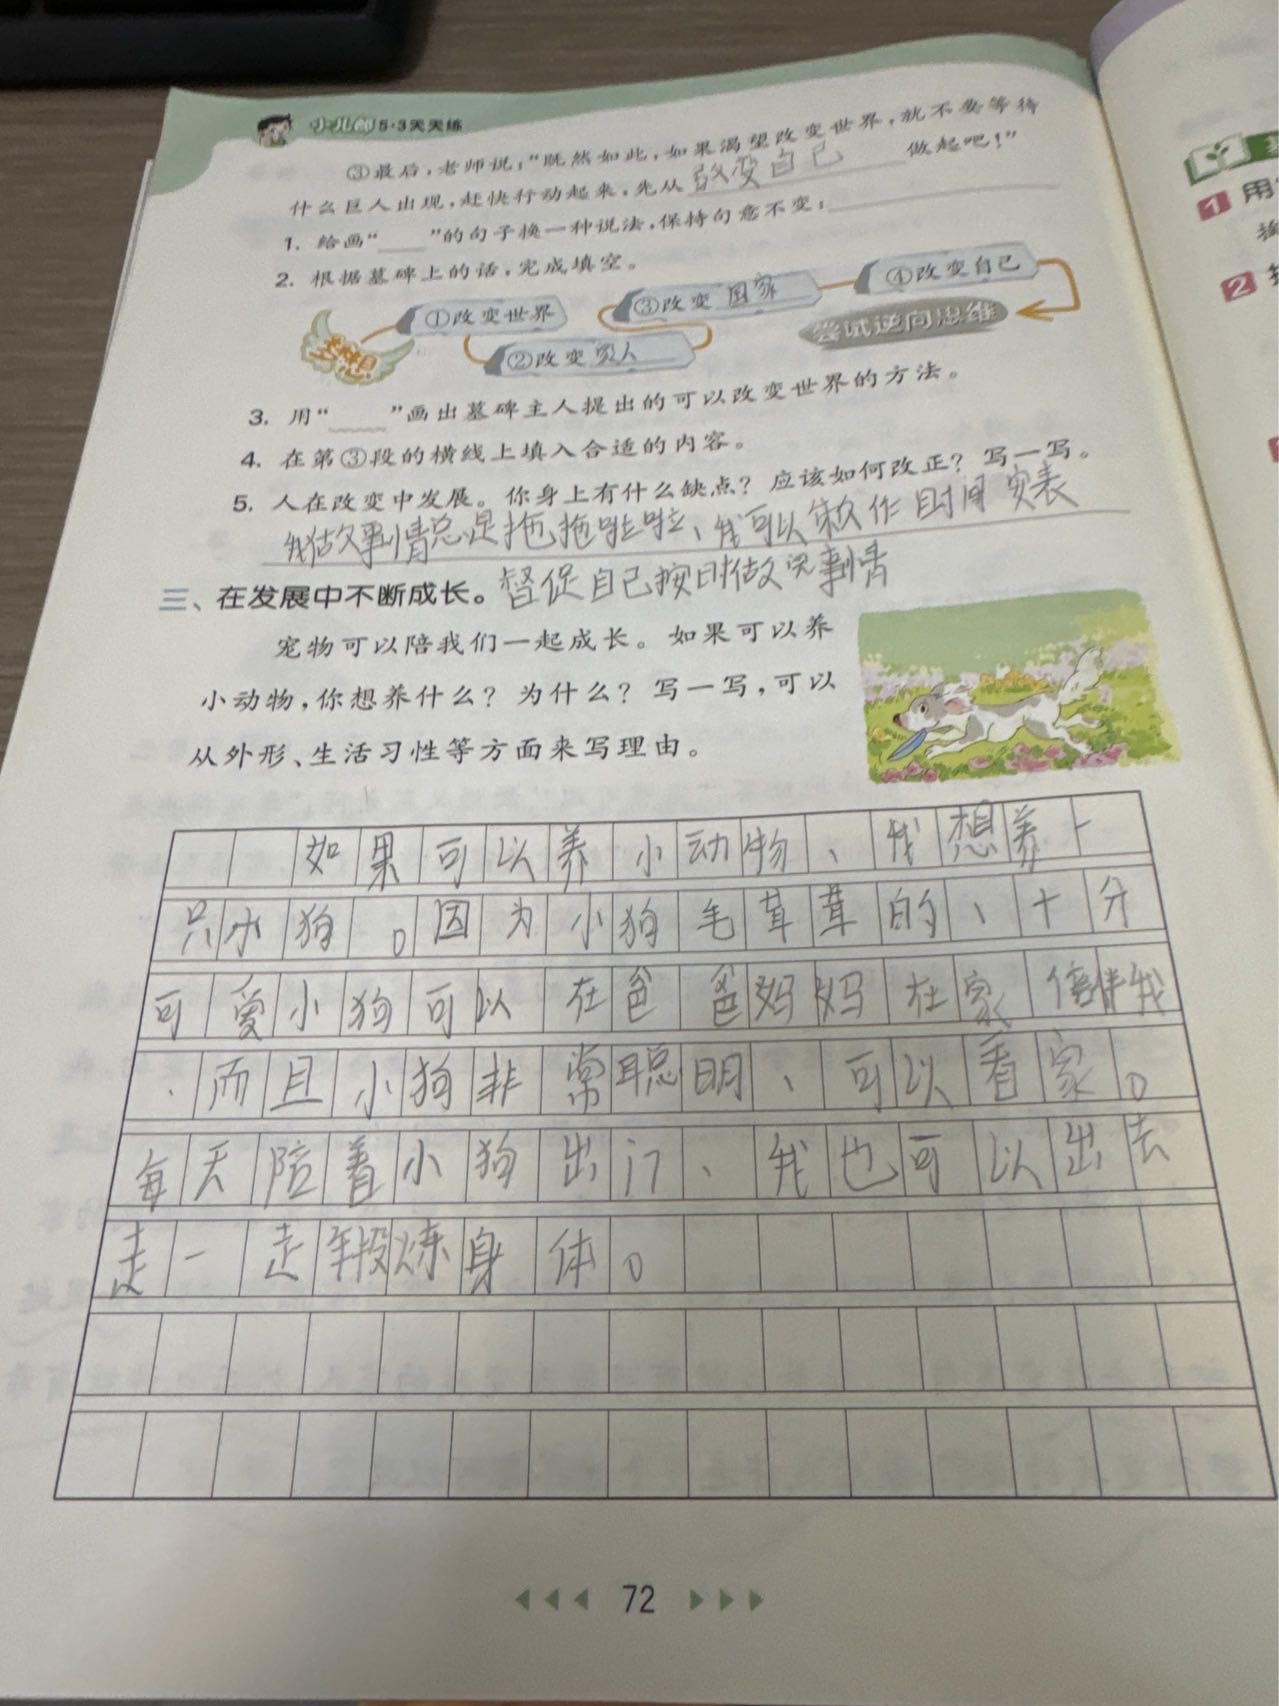 小儿郎 5·3天天练
③最后,老师说:“既然如此,如果渴望改变世界,就不要等待
什么巨人出现,赶快行动起来,先从 改变自己 做起吧!”
1. 给画“____”的句子换一种说法,保持句意不变:
2. 根据墓碑上的话,完成填空。
梦想
①改变世界
②改变 家人
③改变 国家
④改变自己
尝试逆向思维
3. 用“____”画出墓碑主人提出的可以改变世界的方法。
4. 在第③段的横线上填入合适的内容。
5. 人在改变中发展。你身上有什么缺点?应该如何改正?写一写。
我做事情总是拖拖啦啦、我可以做作时间
督促自己按时做完事情
三、在发展中不断成长。
宠物可以陪我们一起成长。如果可以养
小动物,你想养什么?为什么?写一写,可以
从外形、生活习性等方面来写理由。
如果可以养小动物、我想养一
只小狗。因为小狗毛茸茸的、十分
可爱小狗可以在爸爸妈妈在家陪伴我
.而且小狗非常聪明、可以看家。
每天陪着小狗出门、我也可以出去
走一走锻炼身体。
72
1 用
2